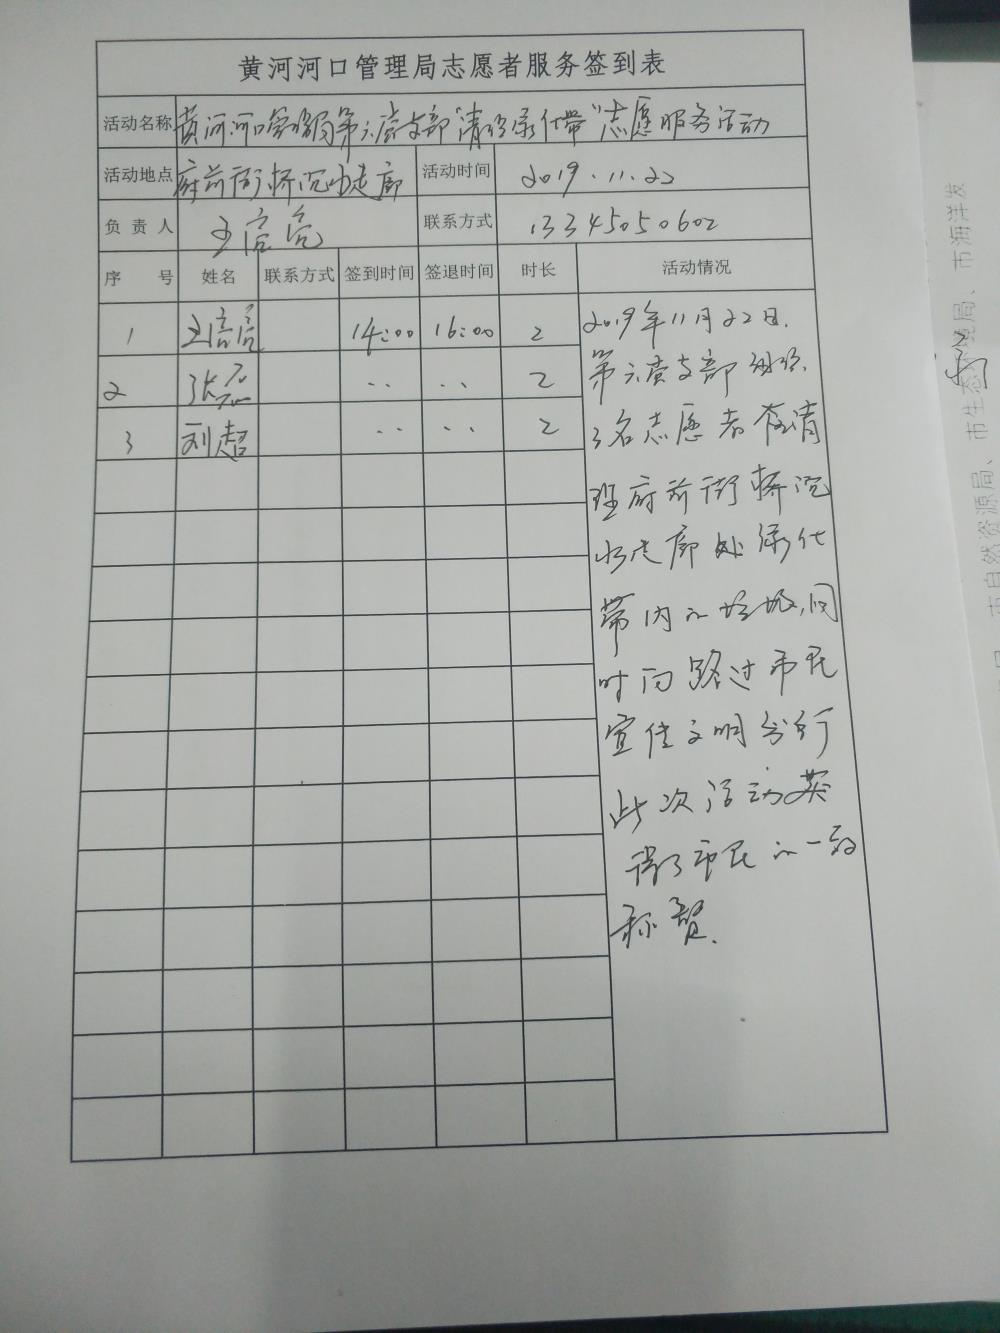 黄河河口管理局志愿者服务签到表
活动名称 黄河河口管理局第六党支部“清理绿化带”志愿服务活动
活动地点 府前街桥沉水走廊 活动时间 2019.11.22
负责人 王信亮 联系方式 13345050602
序号 姓名 联系方式 签到时间 签退时间 时长 活动情况
1 王信亮 14:00 16:00 2
2 张磊 .. .. 2
3 刘超 .. .. 2
2019年11月22日.
第六党支部组织
3名志愿者在清
理府前街桥沉
水走廊处绿化
带内的垃圾,同
时向路过市民
宣传文明出行
此次活动获
得了市民的一致
称赞.
市自然资源局、市生态
局、市海洋发